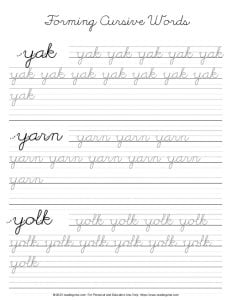 Forming Cursive Words
yak yak yak yak yak yak
yak yak yak yak yak yak yak
yak
yarn yarn yarn yarn yarn
yarn yarn yarn yarn yarn yarn
yarn
yolk yolk yolk yolk yolk
yolk yolk yolk yolk yolk yolk
yolk